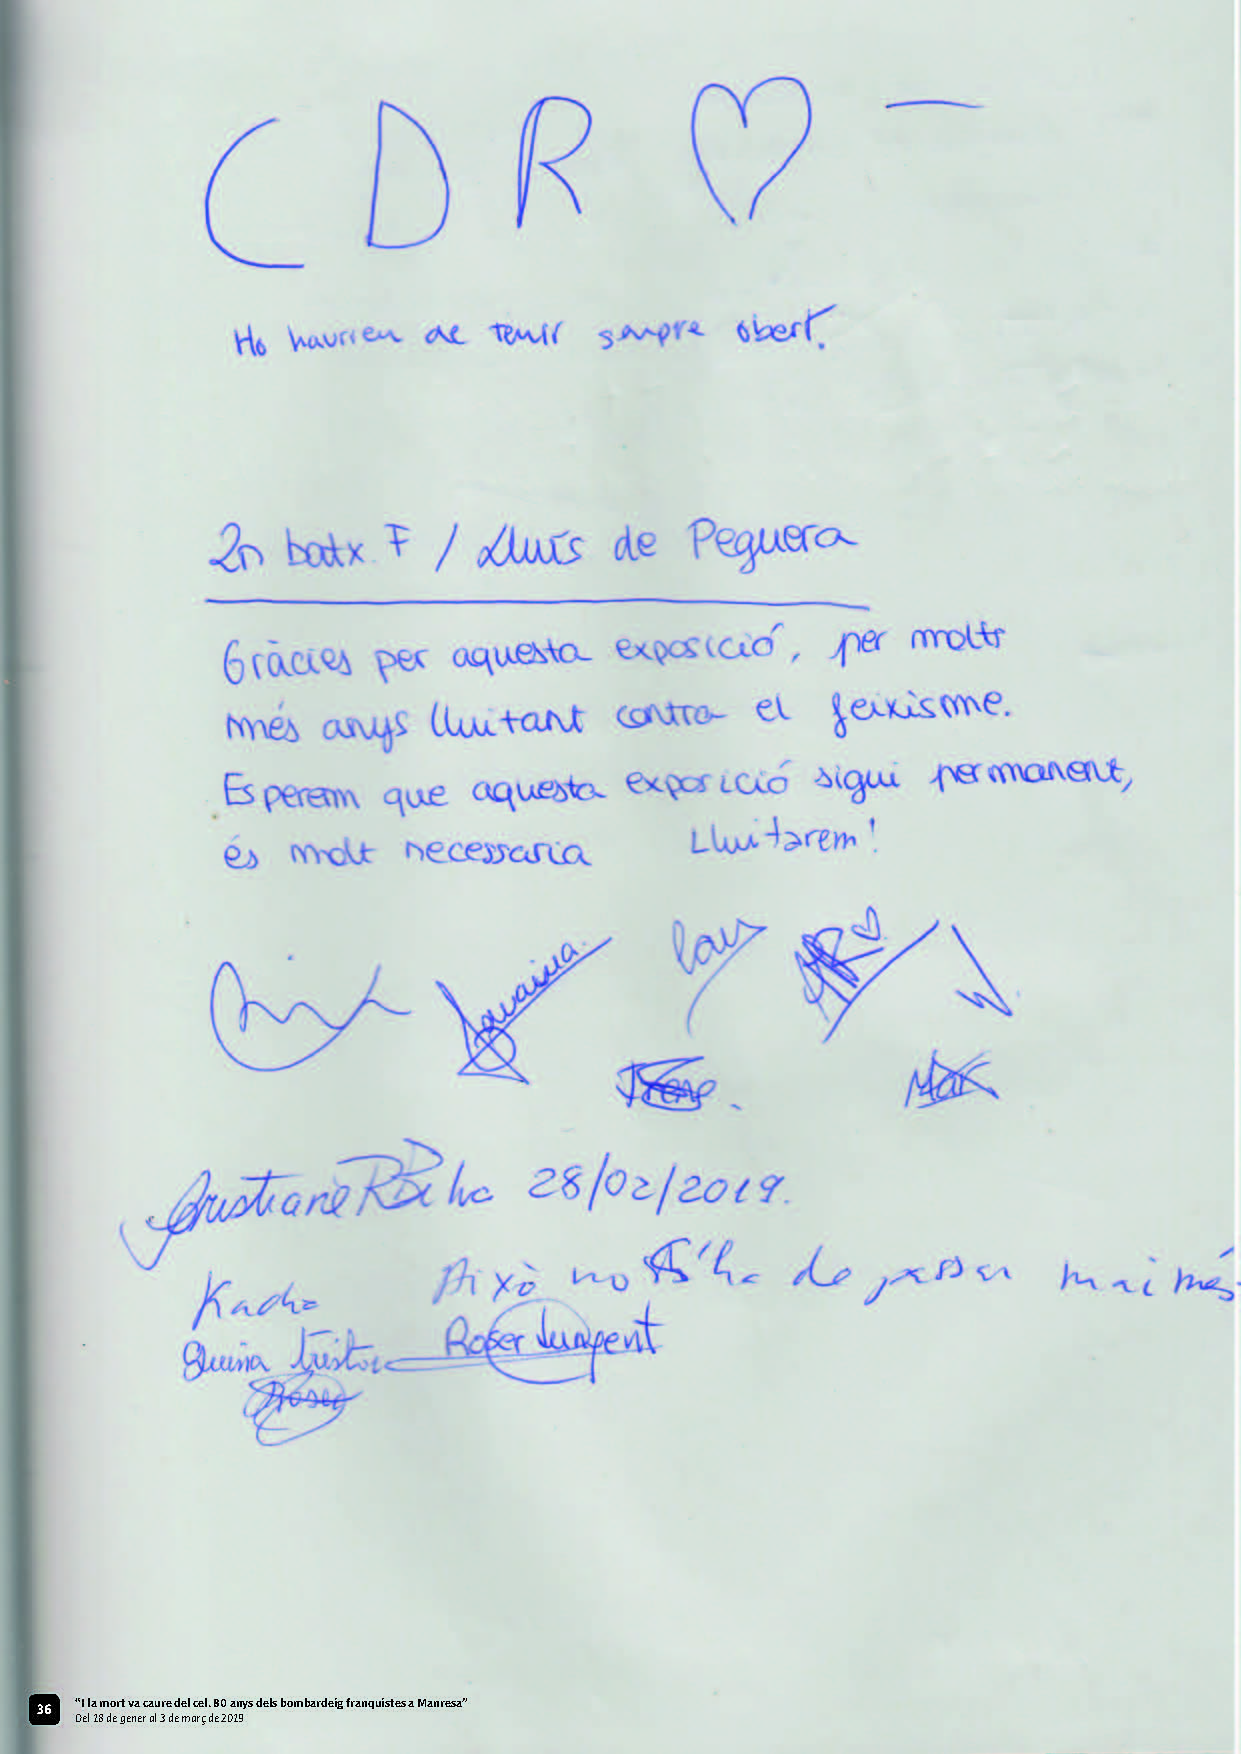 CDR ♡ —
Ho haurien de tenir sempre obert.
2n batx. F / Lluís de Peguera
Gràcies per aquesta exposició, per molts
més anys lluitant contra el feixisme.
Esperem que aquesta exposició sigui permanent,
és molt necessaria Lluitarem!
Irene.
Mar
28/02/2019.
Això no s'ha de passar mai més
Roser
36
"I la mort va caure del cel. 80 anys dels bombardeig franquistes a Manresa"
Del 18 de gener al 3 de març de 2019